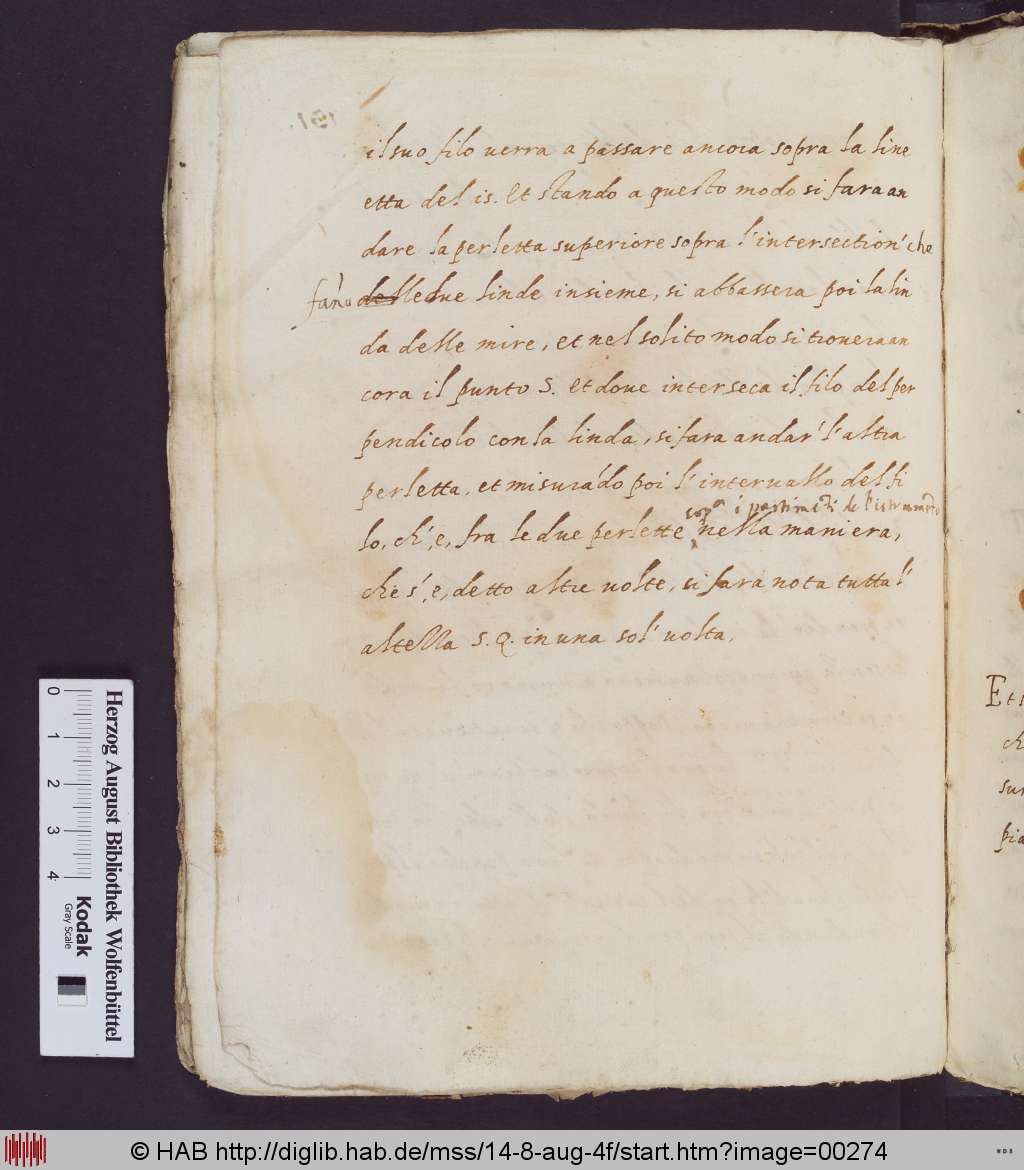 il suo filo uerra a passare ancora sopra la line
etta del is. Et stando a questo modo si fara an
dare la perletta superiore sopra l'intersection' che
fan'o delle due linde insieme, si abbassera poi la lin
da delle mire, et nel solito modo si trouera an
cora il punto S. et doue interseca il filo del per
pendicolo con la linda, si fara andar' l'altra
perletta, et misura'do poi l'interuallo del fi
sop.ª i partime.ti de l'istrume.to
lo, ch', e, fra le due perlette ‸ nella maniera,
che s', e, detto altre uolte, si fara nota tutta l'
altella S. Q. in una sol' uolta.
Et s
ch
sur
pia
Herzog August Bibliothek Wolfenbüttel
0 1 2 3 4
Kodak
Gray Scale
© HAB http://diglib.hab.de/mss/14-8-aug-4f/start.htm?image=00274